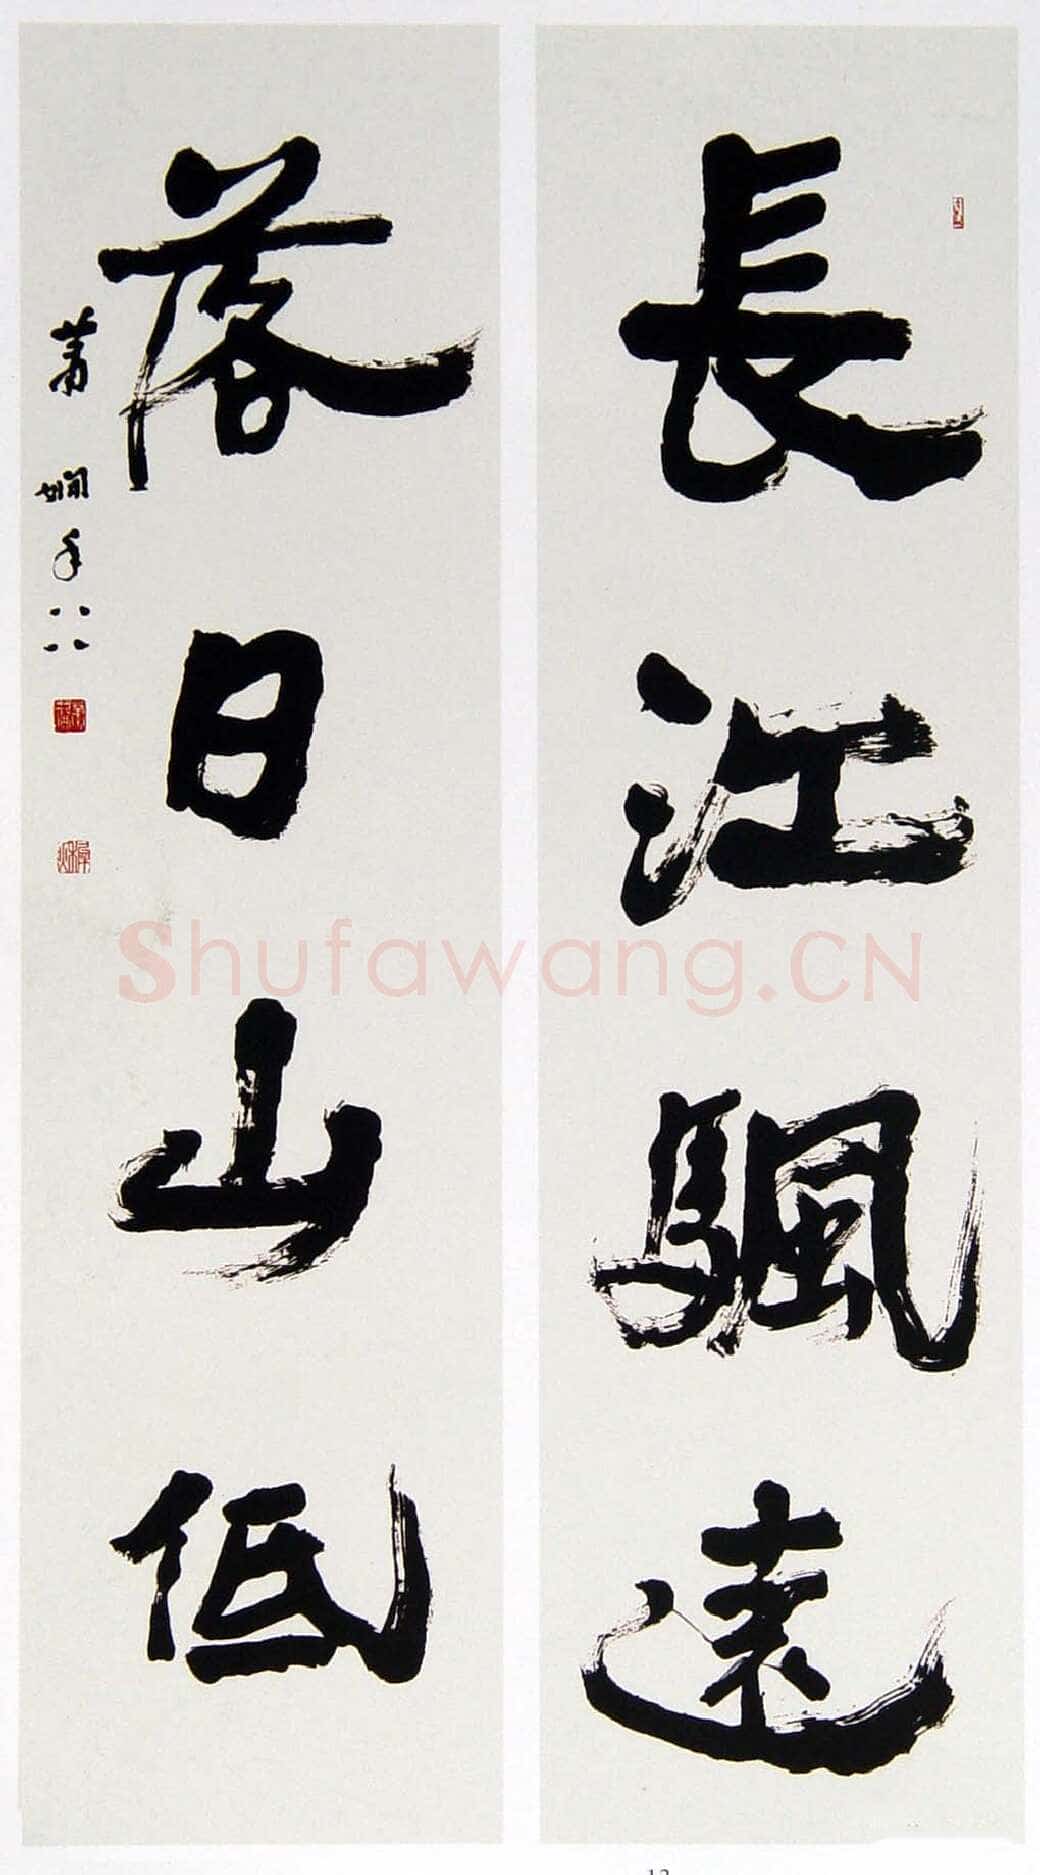 長江颿遠
落日山低
萧嫻年八八
Shufawang.CN
12